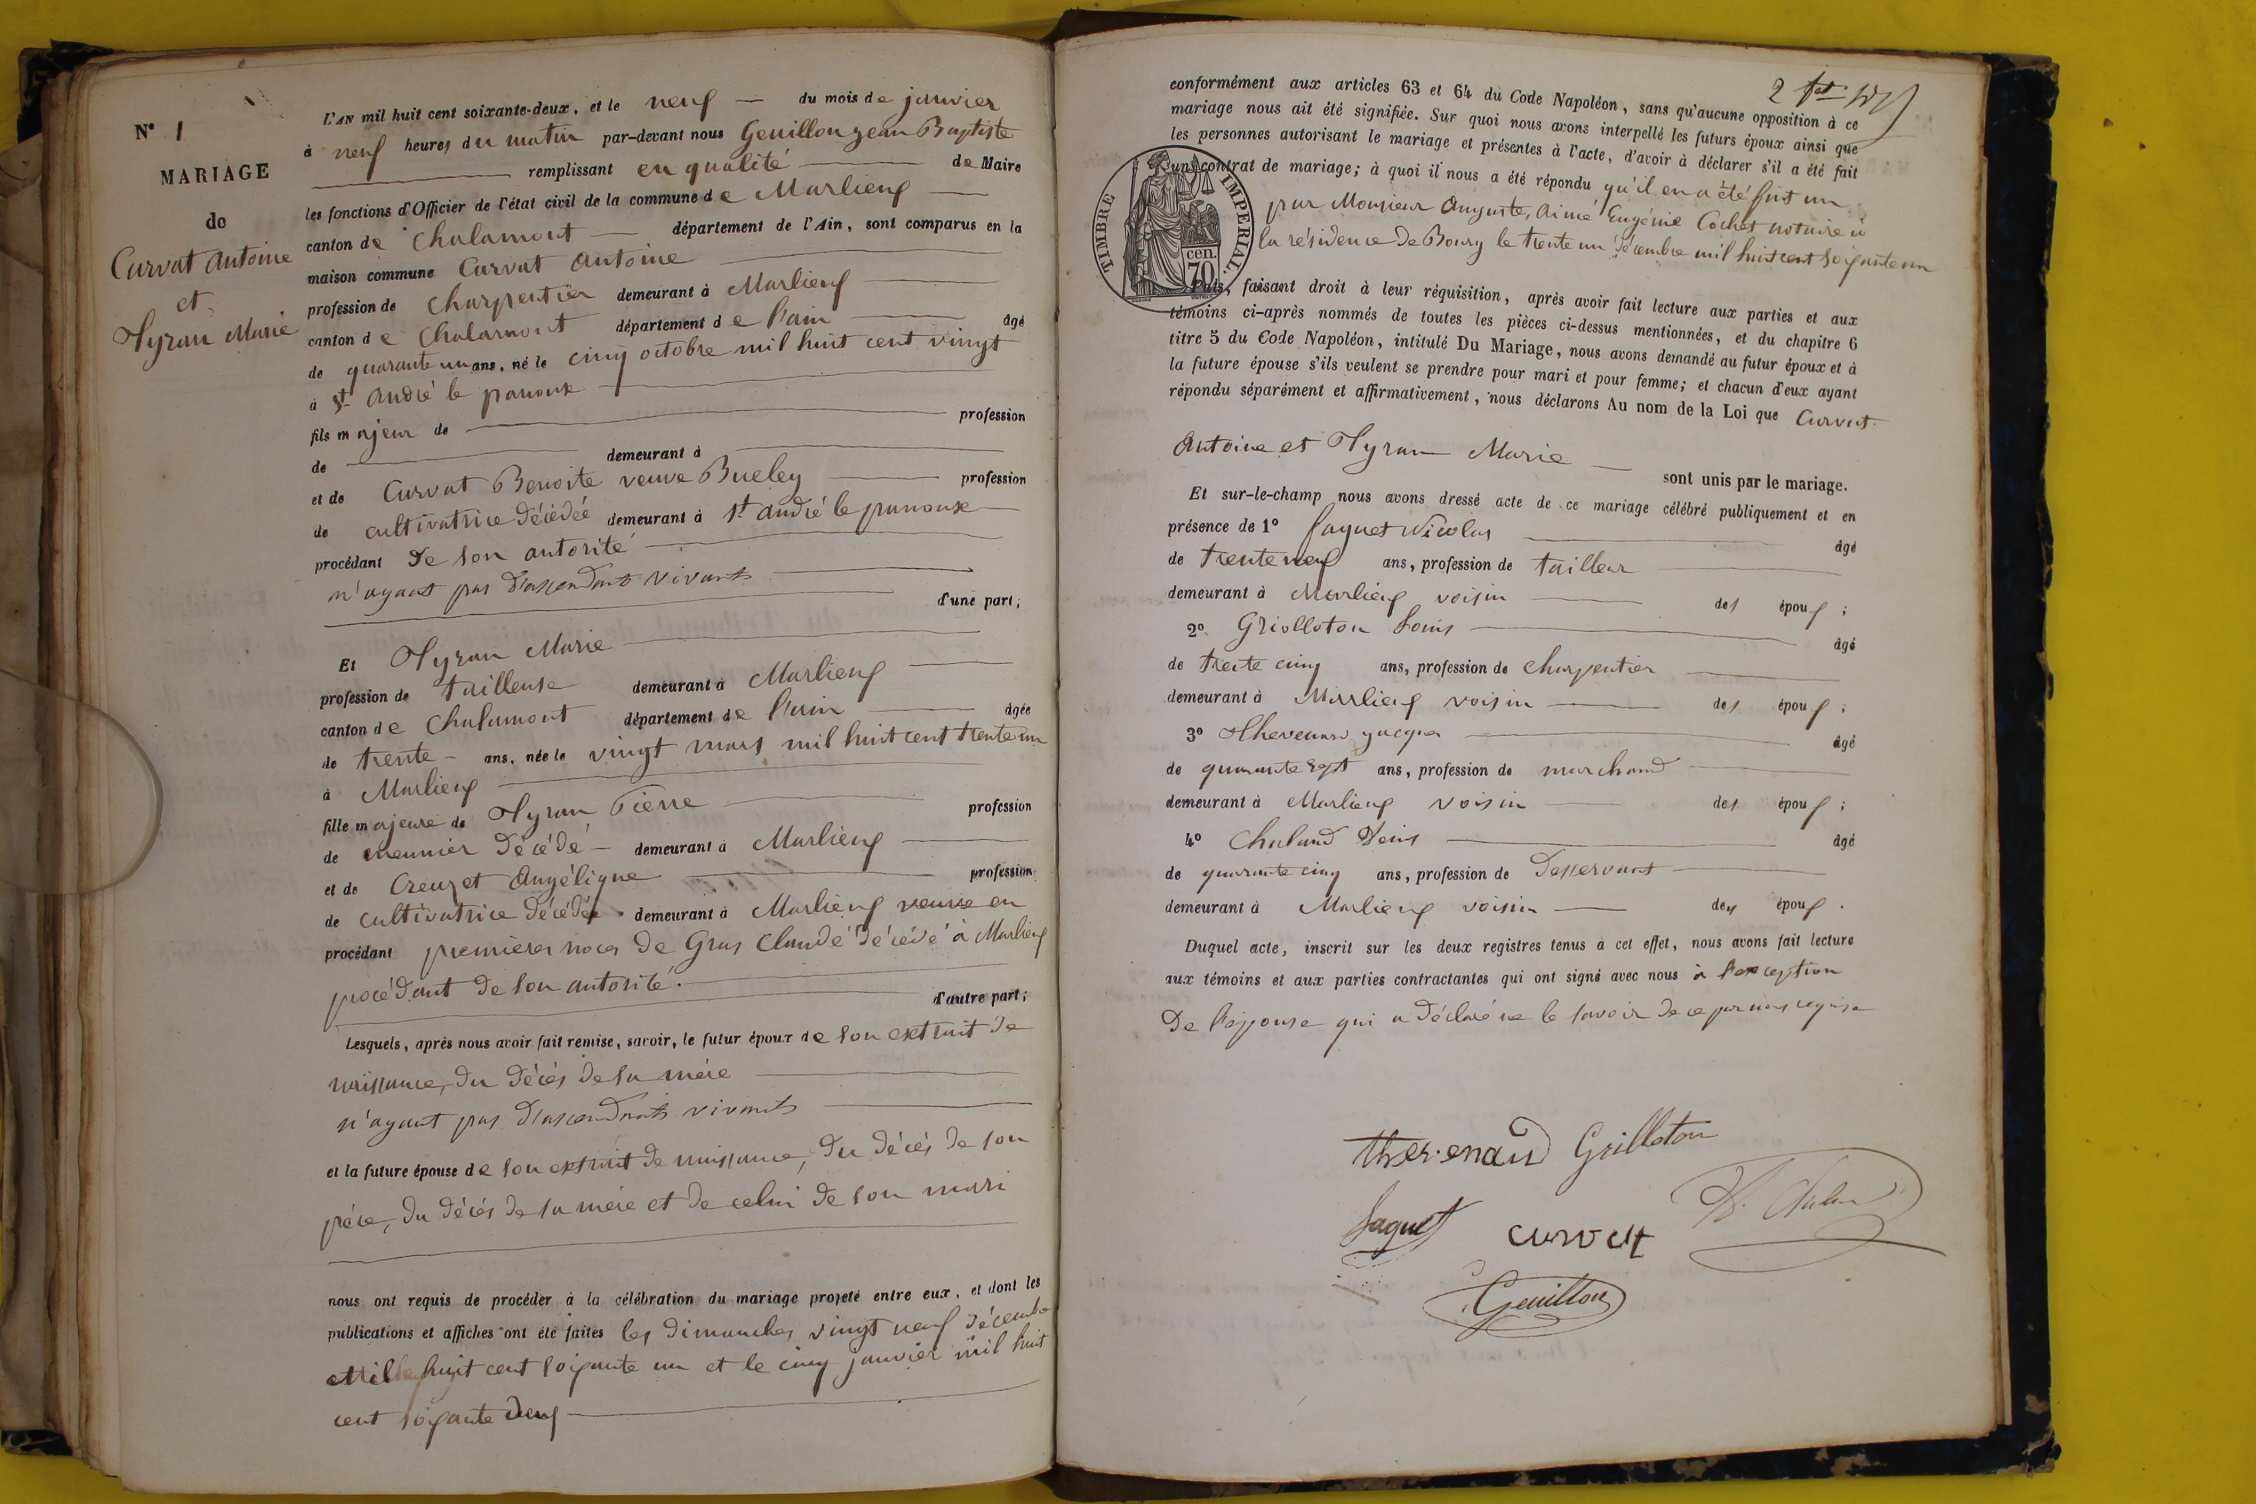 N° 1
MARIAGE
de
Curvat Antoine
et
Tyran Marie
L'AN mil huit cent soixante-deux, et le neuf du mois de janvier
à neuf heures du matin par-devant nous Genillon jean Baptiste
remplissant en qualité de Maire
les fonctions d'Officier de l'état civil de la commune de Marlieux
canton de Chalamont département de l'Ain, sont comparus en la
maison commune Curvat Antoine
profession de charpentier demeurant à Marlieux
canton de Chalamont département de l'ain âgé
de quarante un ans, né le cinq octobre mil huit cent vingt
à St André le panoux
fils majeur de profession
de demeurant à
et de Curvat Benoite veuve Bueley profession
de cultivatrice décédée demeurant à St André le panoux
procédant de son autorité
n'ayant pas d'ascendants vivants
d'une part;
Et Tyran Marie
profession de tailleuse demeurant à Marlieux
canton de Chalamont département de l'ain âgée
de trente ans, née le vingt mars mil huit cent trente un
à Marlieux
fille majeure de Tyran Pierre profession
de meunier décédé demeurant à Marlieux
et de Creuzet Angélique profession
de cultivatrice décédée demeurant à Marlieux veuve en
procédant premières noces de Gras Claude décédé à Marlieux
procédant de son autorité.
d'autre part;
Lesquels, après nous avoir fait remise, savoir, le futur époux de son extrait de
naissance, du décès de sa mère
n'ayant pas d'ascendants vivants
et la future épouse de son extrait de naissance, du décès de son
père, du décès de sa mère et de celui de son mari
nous ont requis de procéder à la célébration du mariage projeté entre eux, et dont les
publications et affiches ont été faites les dimanches vingt neuf décembre
mille huit cent soixante un et le cinq janvier mil huit
cent soixante deux
conformément aux articles 63 et 64 du Code Napoléon, sans qu'aucune opposition à ce
mariage nous ait été signifiée. Sur quoi nous avons interpellé les futurs époux ainsi que
les personnes autorisant le mariage et présentes à l'acte, d'avoir à déclarer s'il a été fait
un contrat de mariage; à quoi il nous a été répondu qu'il en a été fait un
par Monsieur Auguste, Aimé Eugénie Cochet notaire à
la résidence de Bourg le trente un décembre mil huit cent soixante un
TIMBRE IMPERIAL.
cen.
70
Puis, faisant droit à leur réquisition, après avoir fait lecture aux parties et aux
témoins ci-après nommés de toutes les pièces ci-dessus mentionnées, et du chapitre 6
titre 5 du Code Napoléon, intitulé Du Mariage, nous avons demandé au futur époux et à
la future épouse s'ils veulent se prendre pour mari et pour femme; et chacun d'eux ayant
répondu séparément et affirmativement, nous déclarons Au nom de la Loi que Curvat
Antoine et Tyran Marie sont unis par le mariage.
Et sur-le-champ nous avons dressé acte de ce mariage célébré publiquement et en
présence de 1° Jaquet Nicolas âgé
de trente neuf ans, profession de tailleur
demeurant à Marlieux voisin des époux;
2° Griolloton Louis âgé
de trente cinq ans, profession de charpentier
demeurant à Marlieux voisin des époux;
3° Thevenard jacques âgé
de quarante sept ans, profession de marchand
demeurant à Marlieux voisin des époux;
4° Chaland Denis âgé
de quarante cinq ans, profession de desservant
demeurant à Marlieux voisin des époux.
Duquel acte, inscrit sur les deux registres tenus à cet effet, nous avons fait lecture
aux témoins et aux parties contractantes qui ont signé avec nous à l'exception
de l'épouse qui a déclaré ne le savoir de ce par nous requise
thevenard Grilloton
Jaquet curvat D. Chaland
Genillon